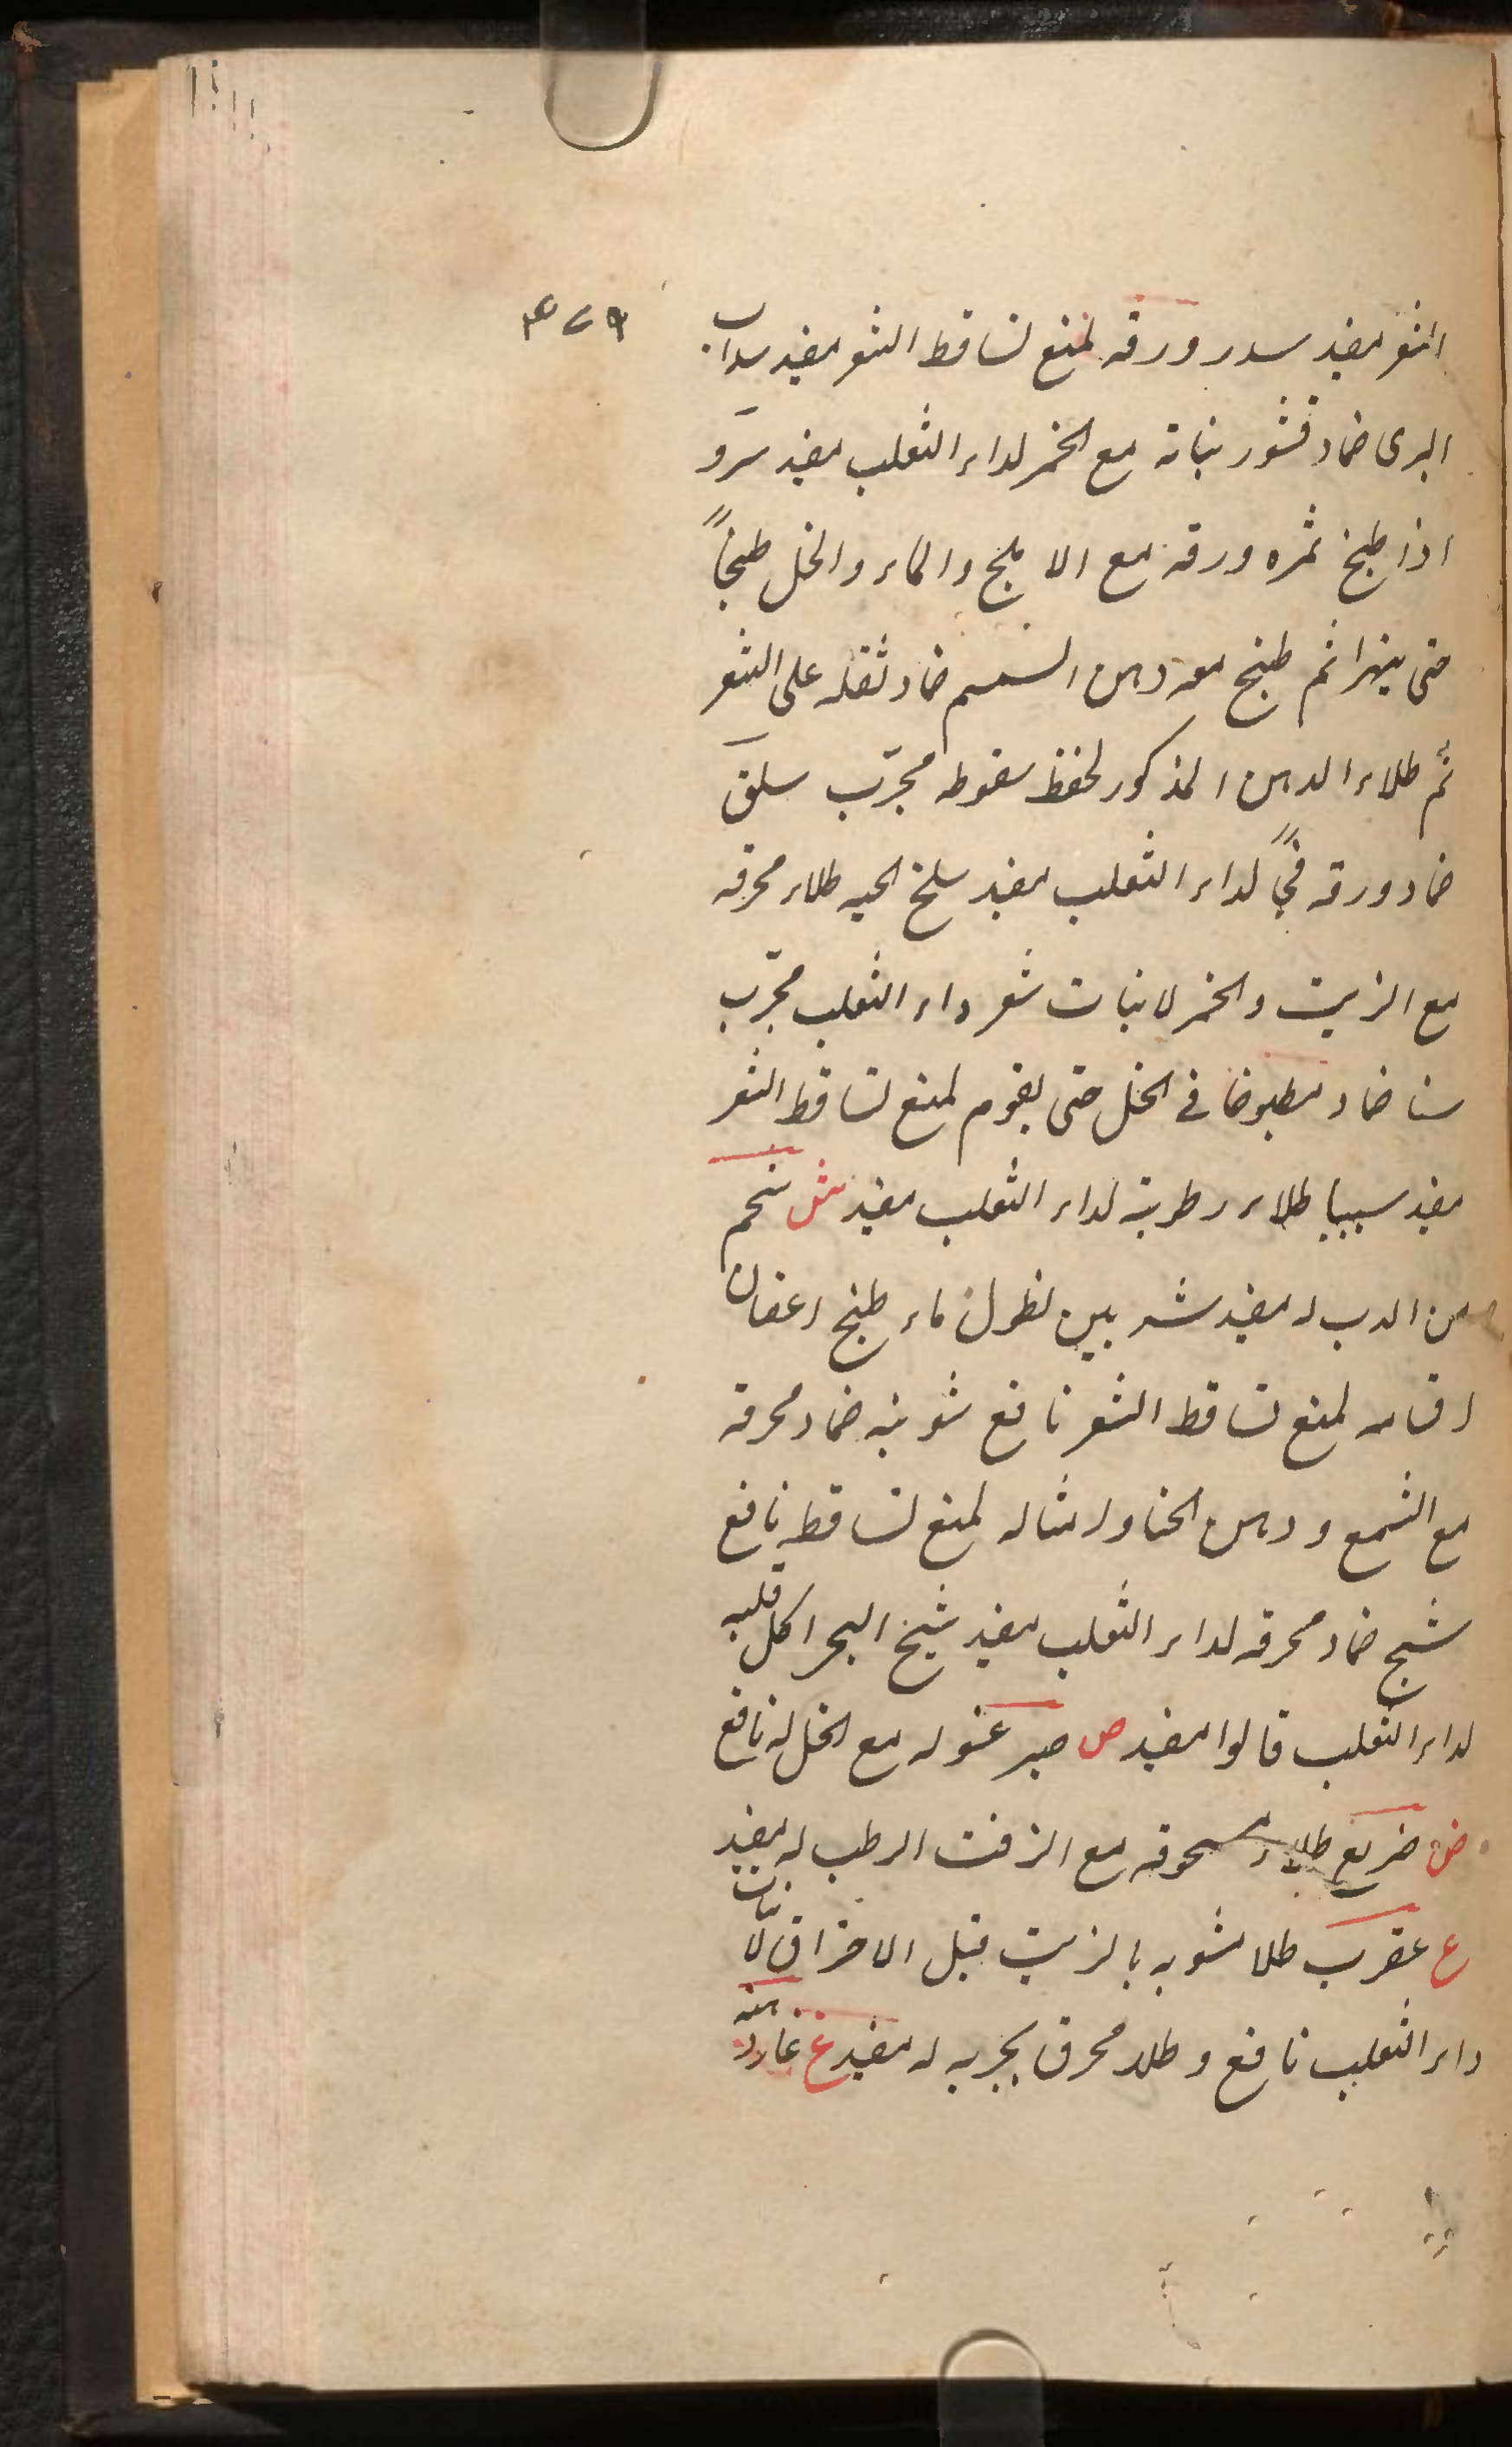 الشعر مفید سدر ورقه لمنع تساقط الشعر مفید سداب
البری ضماد قشور نباته مع الخمر لداء الثعلب مفید سرو
اذا طبخ ثمره ورقه مع الاملج والماء والخل طبخاً
حتی یتهرا ثم طبخ معه دهن السمسم ضماد ثفله علی الشعر
ثم طلاء الدهن المذکور لحفظ سقوطه مجرّب سلق
ضماد ورقه لداء الثعلب مفید سلخ الحیه طلاء محرقه
مع الزیت والخمر لانبات شعر داء الثعلب مجرّب
سنا ضماد مطبوخا فی الخل حتی یقوم لمنع تساقط الشعر
مفید سیبیا طلاء رطوبته لداء الثعلب مفید ش شحم
من الدب له مفید شربین نطول ماء طبخ اغصان
اقسامه لمنع تساقط الشعر نافع شونیه ضماد محرقه
مع الشمع ودهن الحنا وامثاله لمنع تساقطه نافع
شیح ضماد محرقه لداء الثعلب مفید شیخ البحر اکل قلبه
لداء الثعلب قالوا مفید ص صبر غسوله مع الخل له نافع
ض ضریع طلاء مسحوقه مع الزفت الرطب له مفید
ع عقرب طلا مشویه بالزیت قبل الاحتراق لانبات
داء الثعلب نافع وطلاء محرق بجربه له مفید غ